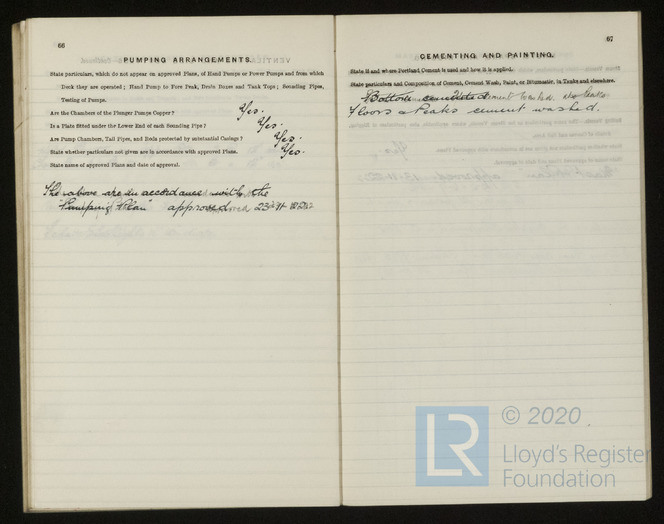 66
PUMPING ARRANGEMENTS.
State particulars, which do not appear on approved Plans, of Hand Pumps or Power Pumps and from which
Deck they are operated; Hand Pump to Fore Peak, Drain Boxes and Tank Tops; Sounding Pipes,
Testing of Pumps.
Are the Chambers of the Plunger Pumps Copper? Yes.
Is a Plate fitted under the Lower End of each Sounding Pipe? Yes.
Are Pump Chambers, Tail Pipes, and Rods protected by substantial Casings? Yes.
State whether particulars not given are in accordance with approved Plans. Yes.
State name of approved Plans and date of approval.
The above are in accordance with the
"Pumping Plan" approved
67
CEMENTING AND PAINTING.
State if and where Portland Cement is used and how it is applied.
State particulars and Composition of Cement, Cement Wash, Paint, or Bitumastic, in Tanks and elsewhere.
Bottom
Floors & Peaks cement washed.
LR
© 2020
Lloyd's Register
Foundation